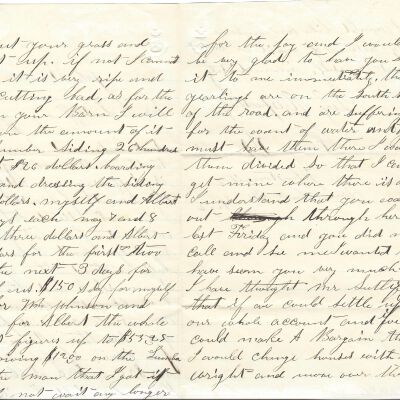 your grass and
up. if not I cannot
it is very ripe and
cutting bad, as for the
your Barn I will
the amount of it
lumber Siding 26 hundred
$26 dollars. boarding
and dressing the siding
dollars. myself and Albert
days each may 7 and 8
three dollars and Albert
for the first two
the next 3 days for
$1.50 for myself
Wm Johnson and
for Albert the whole
figures up to $53,25
owing $1200 on the Lumber
the man that I got it
not wait any longer
for the pay and I would
be very glad to have you send
it to me immediately, the
yearlings are on the South side
of the road. and are suffering
for the want of water and
must have them there I
them divided so that I can
get mine where there is
I understand that you was
out through here
last Friday and you did not
call and see me I wanted to
have seen you very much
I have thought Mr
that if we could settle up
our whole account and
could make A Bargain that
I would change houses with
wright and move our